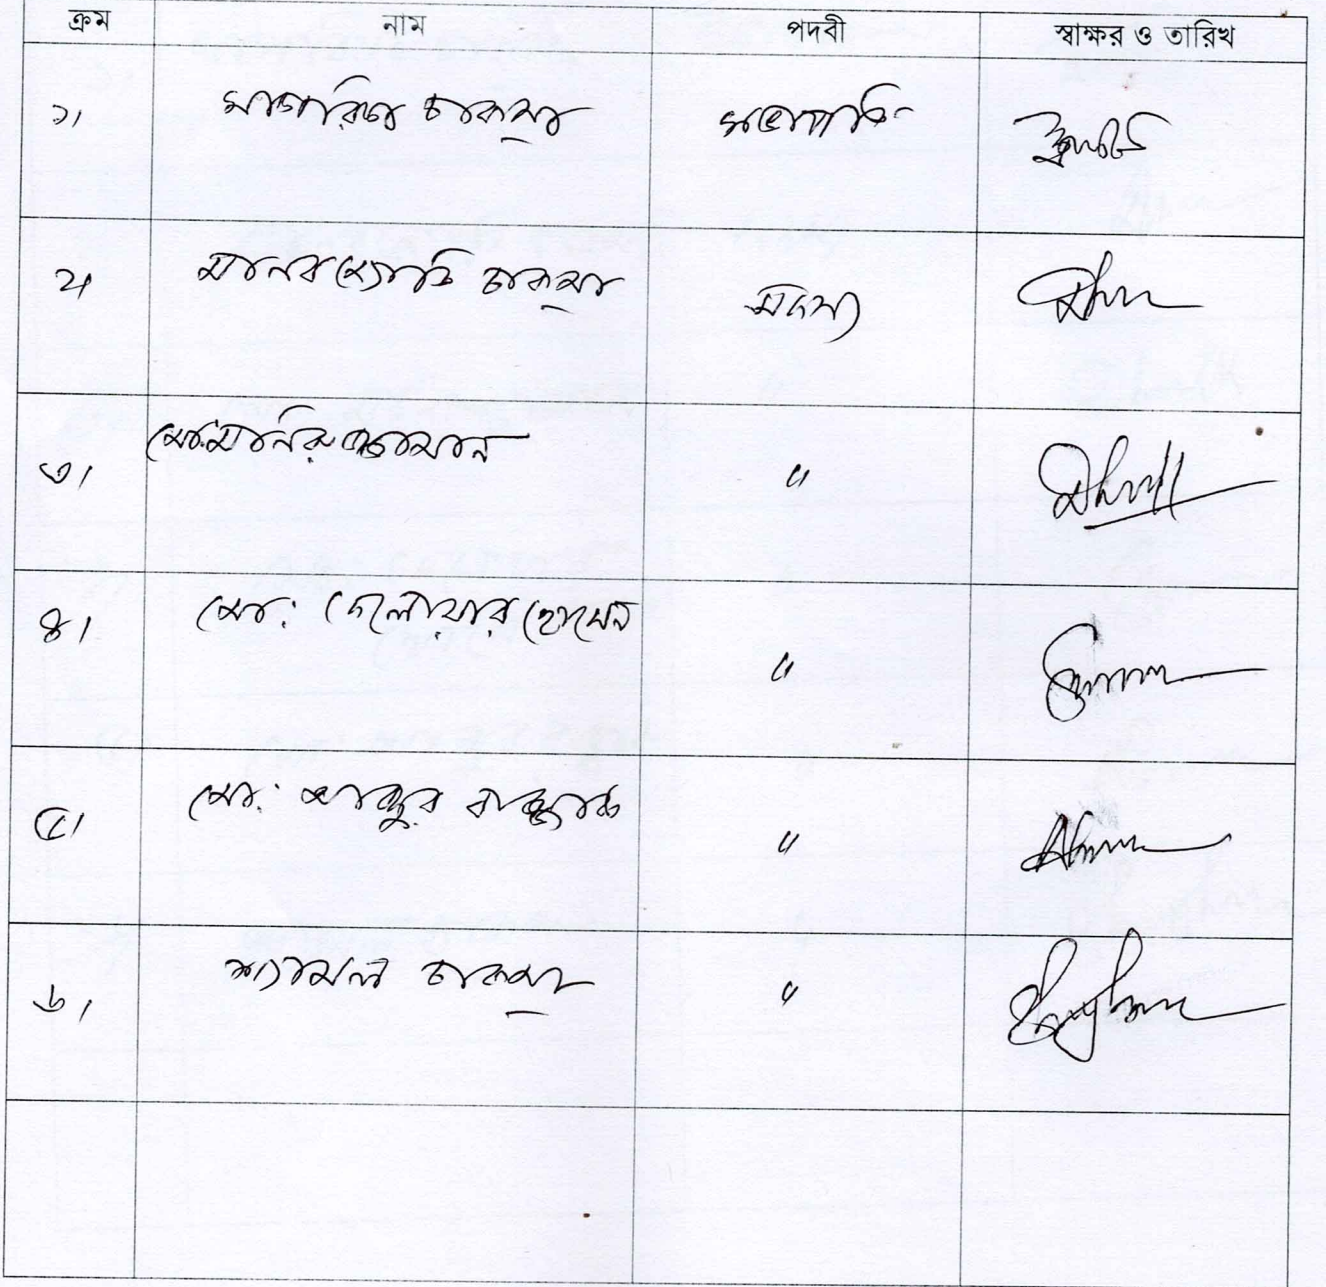 ক্রম নাম পদবী স্বাক্ষর ও তারিখ
১। সাগরিকা চাকমা সভাপতি
২। মানব জ্যোতি চাকমা সদস্য
৩। মো: মনিরুজ্জামান "
৪। মো: দেলোয়ার হোসেন "
৫। মো: "
৬। শ্যামল চাকমা "